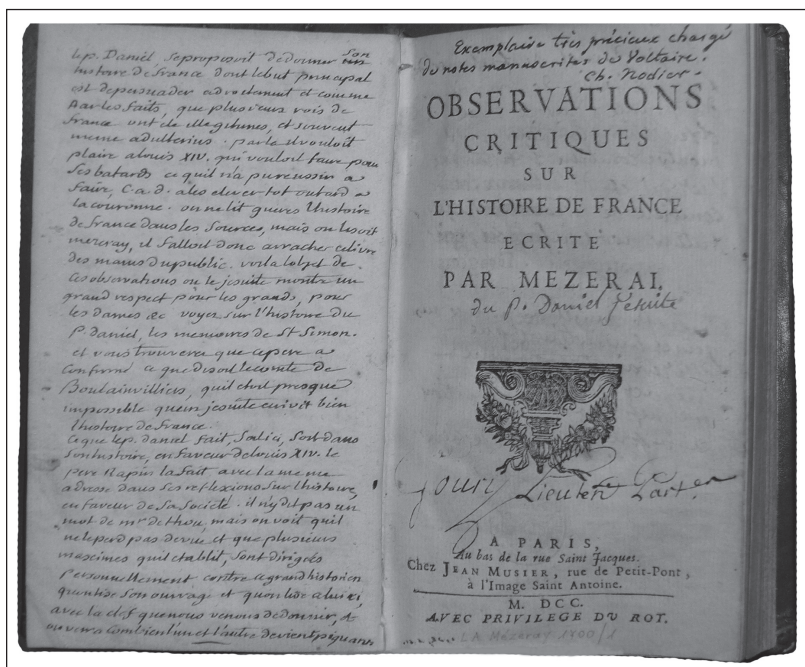 le p. Daniel, se proposoit de donner son
histoire de france dont le but principal
est de persuader adroitement et comme
par les faits, que plusieurs rois de
france ont été illegitimes, et souvent
meme adulterins : par la il vouloit
plaire a louis XIV. qui vouloit faire pour
ses batards ce qu'il n'a pu reussir a
faire, c. a. d. a les elever tot ou tard a
la couronne. on ne lit gueres l'histoire
de france dans les sources, mais on lisoit
mezeray, il falloit donc arracher ce livre
des mains du public. voila l'objet de
ces observations ou le jesuite montre un
grand respect pour les grands, pour
les dames &c voyez sur l'histoire du
P. Daniel, les memoires de St Simon.
et vous trouverez que ce pere a
confirmé ce que disoit le comte de
Boulainvilliers, qu'il etoit presque
impossible qu'un jesuite ecrivit bien
l'histoire de france.
Ce que le p. daniel fait, ici, soit dans
son histoire, en faveur de louis XIV. le
pere Rapin l'a fait avec la meme
adresse dans ses reflexions sur l'histoire,
en faveur de sa Societé : il n'y dit pas un
mot de mr de thou, mais on voit qu'il
ne le perd pas de vue et que plusieurs
maximes qu'il etablit, sont dirigées
personnellement contre ce grand historien
quon lise son ouvrage et quon lise celui ci,
avec la clef que nous venons de donner, &
on verra combien l'un et l'autre devient piquant
Exemplaire très précieux chargé
de notes manuscrites de Voltaire.
Ch. Nodier.
OBSERVATIONS
CRITIQUES
SUR
L'HISTOIRE DE FRANCE
ECRITE
PAR MEZERAI.
du P. Daniel Jésuite
Lieuten
A PARIS,
Au bas de la rue Saint Jacques.
Chez JEAN MUSIER, rue de Petit-Pont,
à l'Image Saint Antoine.
M. DCC.
AVEC PRIVILEGE DU ROY.
LA Mézeray 1700/1